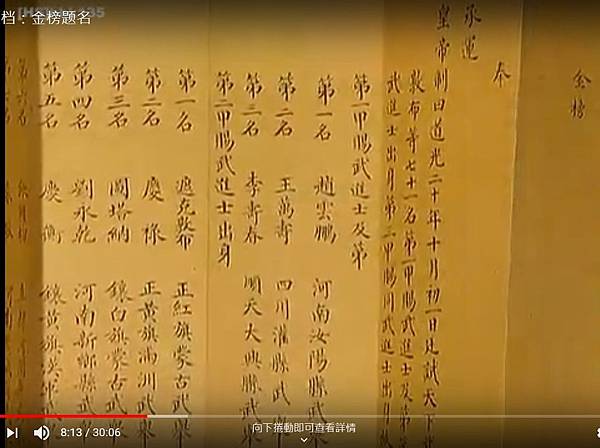 档：金榜题名
金榜
奉
承運
皇帝制曰道光二十年十月初一日廷試天下
敦布等七十一名第一甲賜武進士及第
武進士出身第三甲賜同武進士出身
第一甲賜武進士及第
第一名 趙雲鵬 河南汝陽縣武
第二名 王萬壽 四川灌縣武
第三名 李壽春 順天大興縣武
第二甲賜武進士出身
第一名 遮克敦布 正紅旗蒙古武舉
第二名 慶祿 正黃旗滿洲武舉
第三名 塔納 鑲白旗蒙古武
第四名 劉永乾 河南新鄉縣武
第五名 慶衡 鑲黃旗漢軍
第六名
8:13 / 30:06
向下捲動即可查看詳情